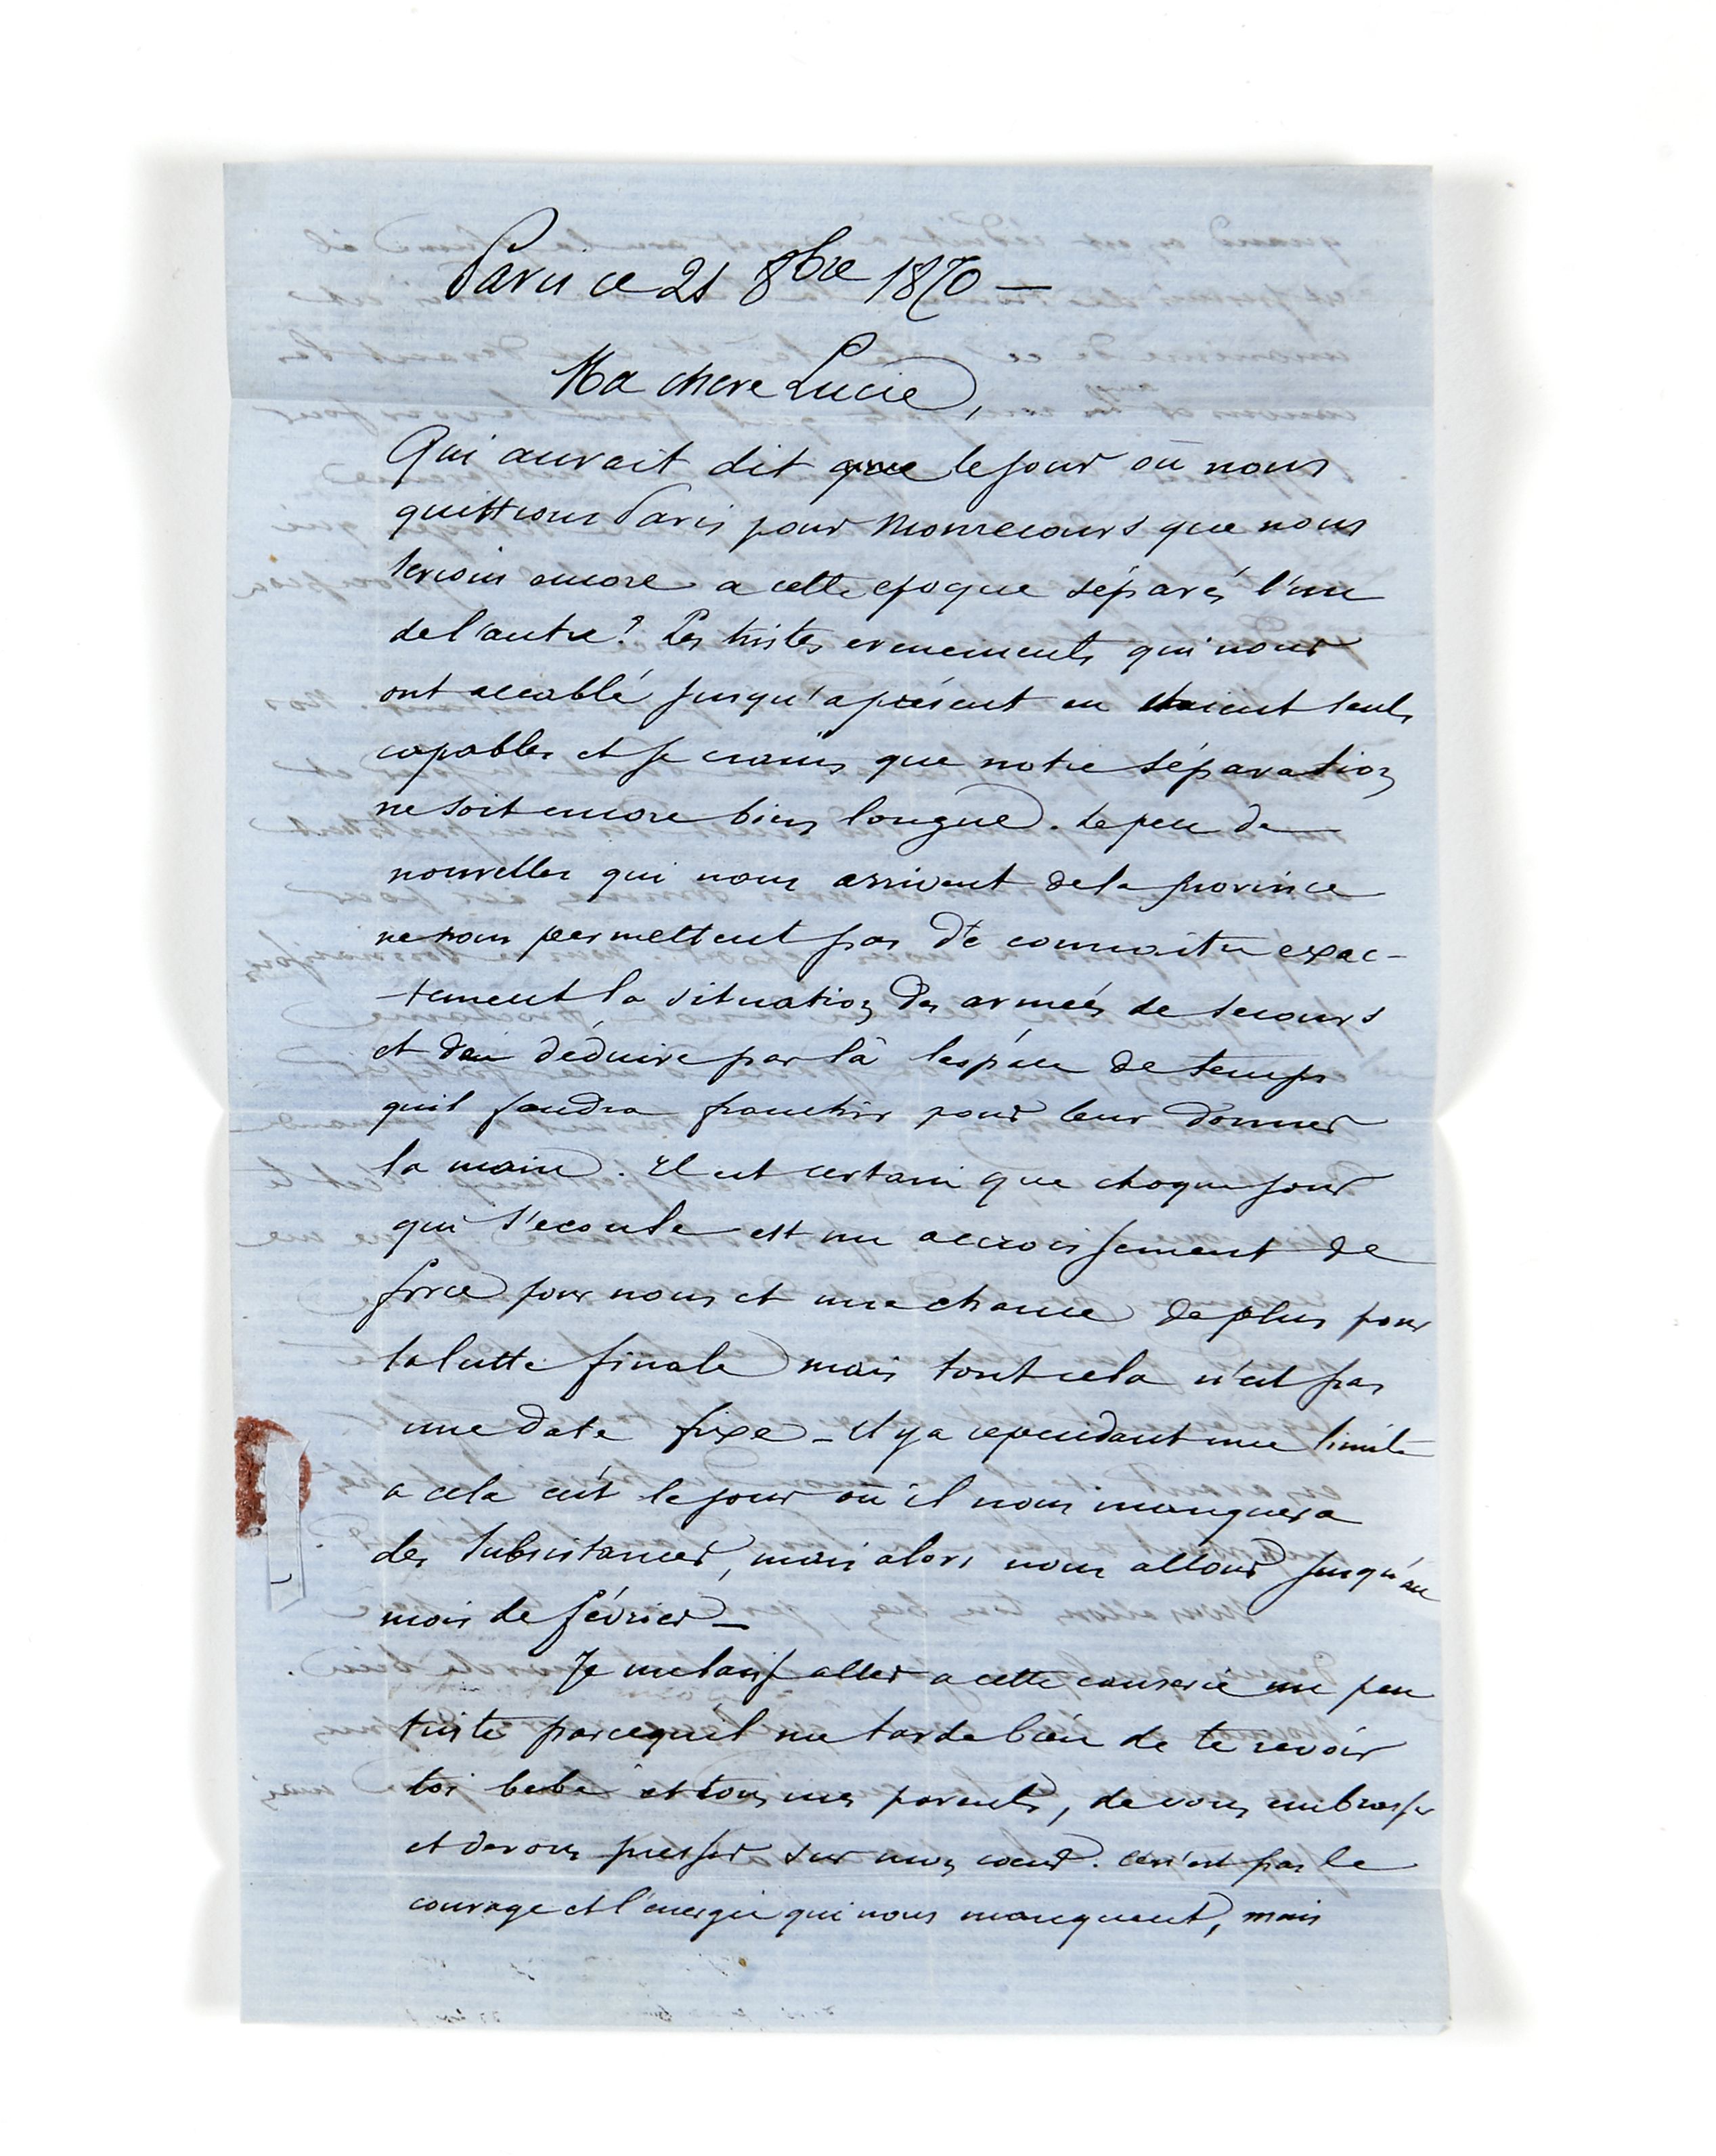 Paris ce 21 8bre 1870 —
Ma chere Lucie,
Qui aurait dit que le jour où nous
quittions Paris pour que nous
serions encore a cette epoque séparés l'un
de l'autre? Les tristes evenements qui nous
ont accablé jusqu'aprésent en etaient seuls
capables et je crains que notre séparation
ne soit encore bien longue. Le peu de
nouvelles qui nous arrivent de la province
ne nous permettent pas de connaitre exac-
-tement la situation des armées de secours
et d'en déduire par là l'espace de temps
quil faudra franchir pour leur donner
la main. Il est certain que chaque jour
qui s'ecoule est un accroissement de
force pour nous et une chance de plus pour
la lutte finale mais tout cela n'est pas
une date fixe — Il y a cependant une limite
a cela c'est le jour où il nous manquera
des subsistances, mais alors nous allons jusqu'au
mois de février —
Je me laisse aller a cette causerie un peu
triste parcequ'il me tarde bien de te revoir
toi bebe et tous mes parents, de vous embrasser
et de vous presser sur mon coeur. Ce n'est pas le
courage et l'energie qui nous manquent, mais